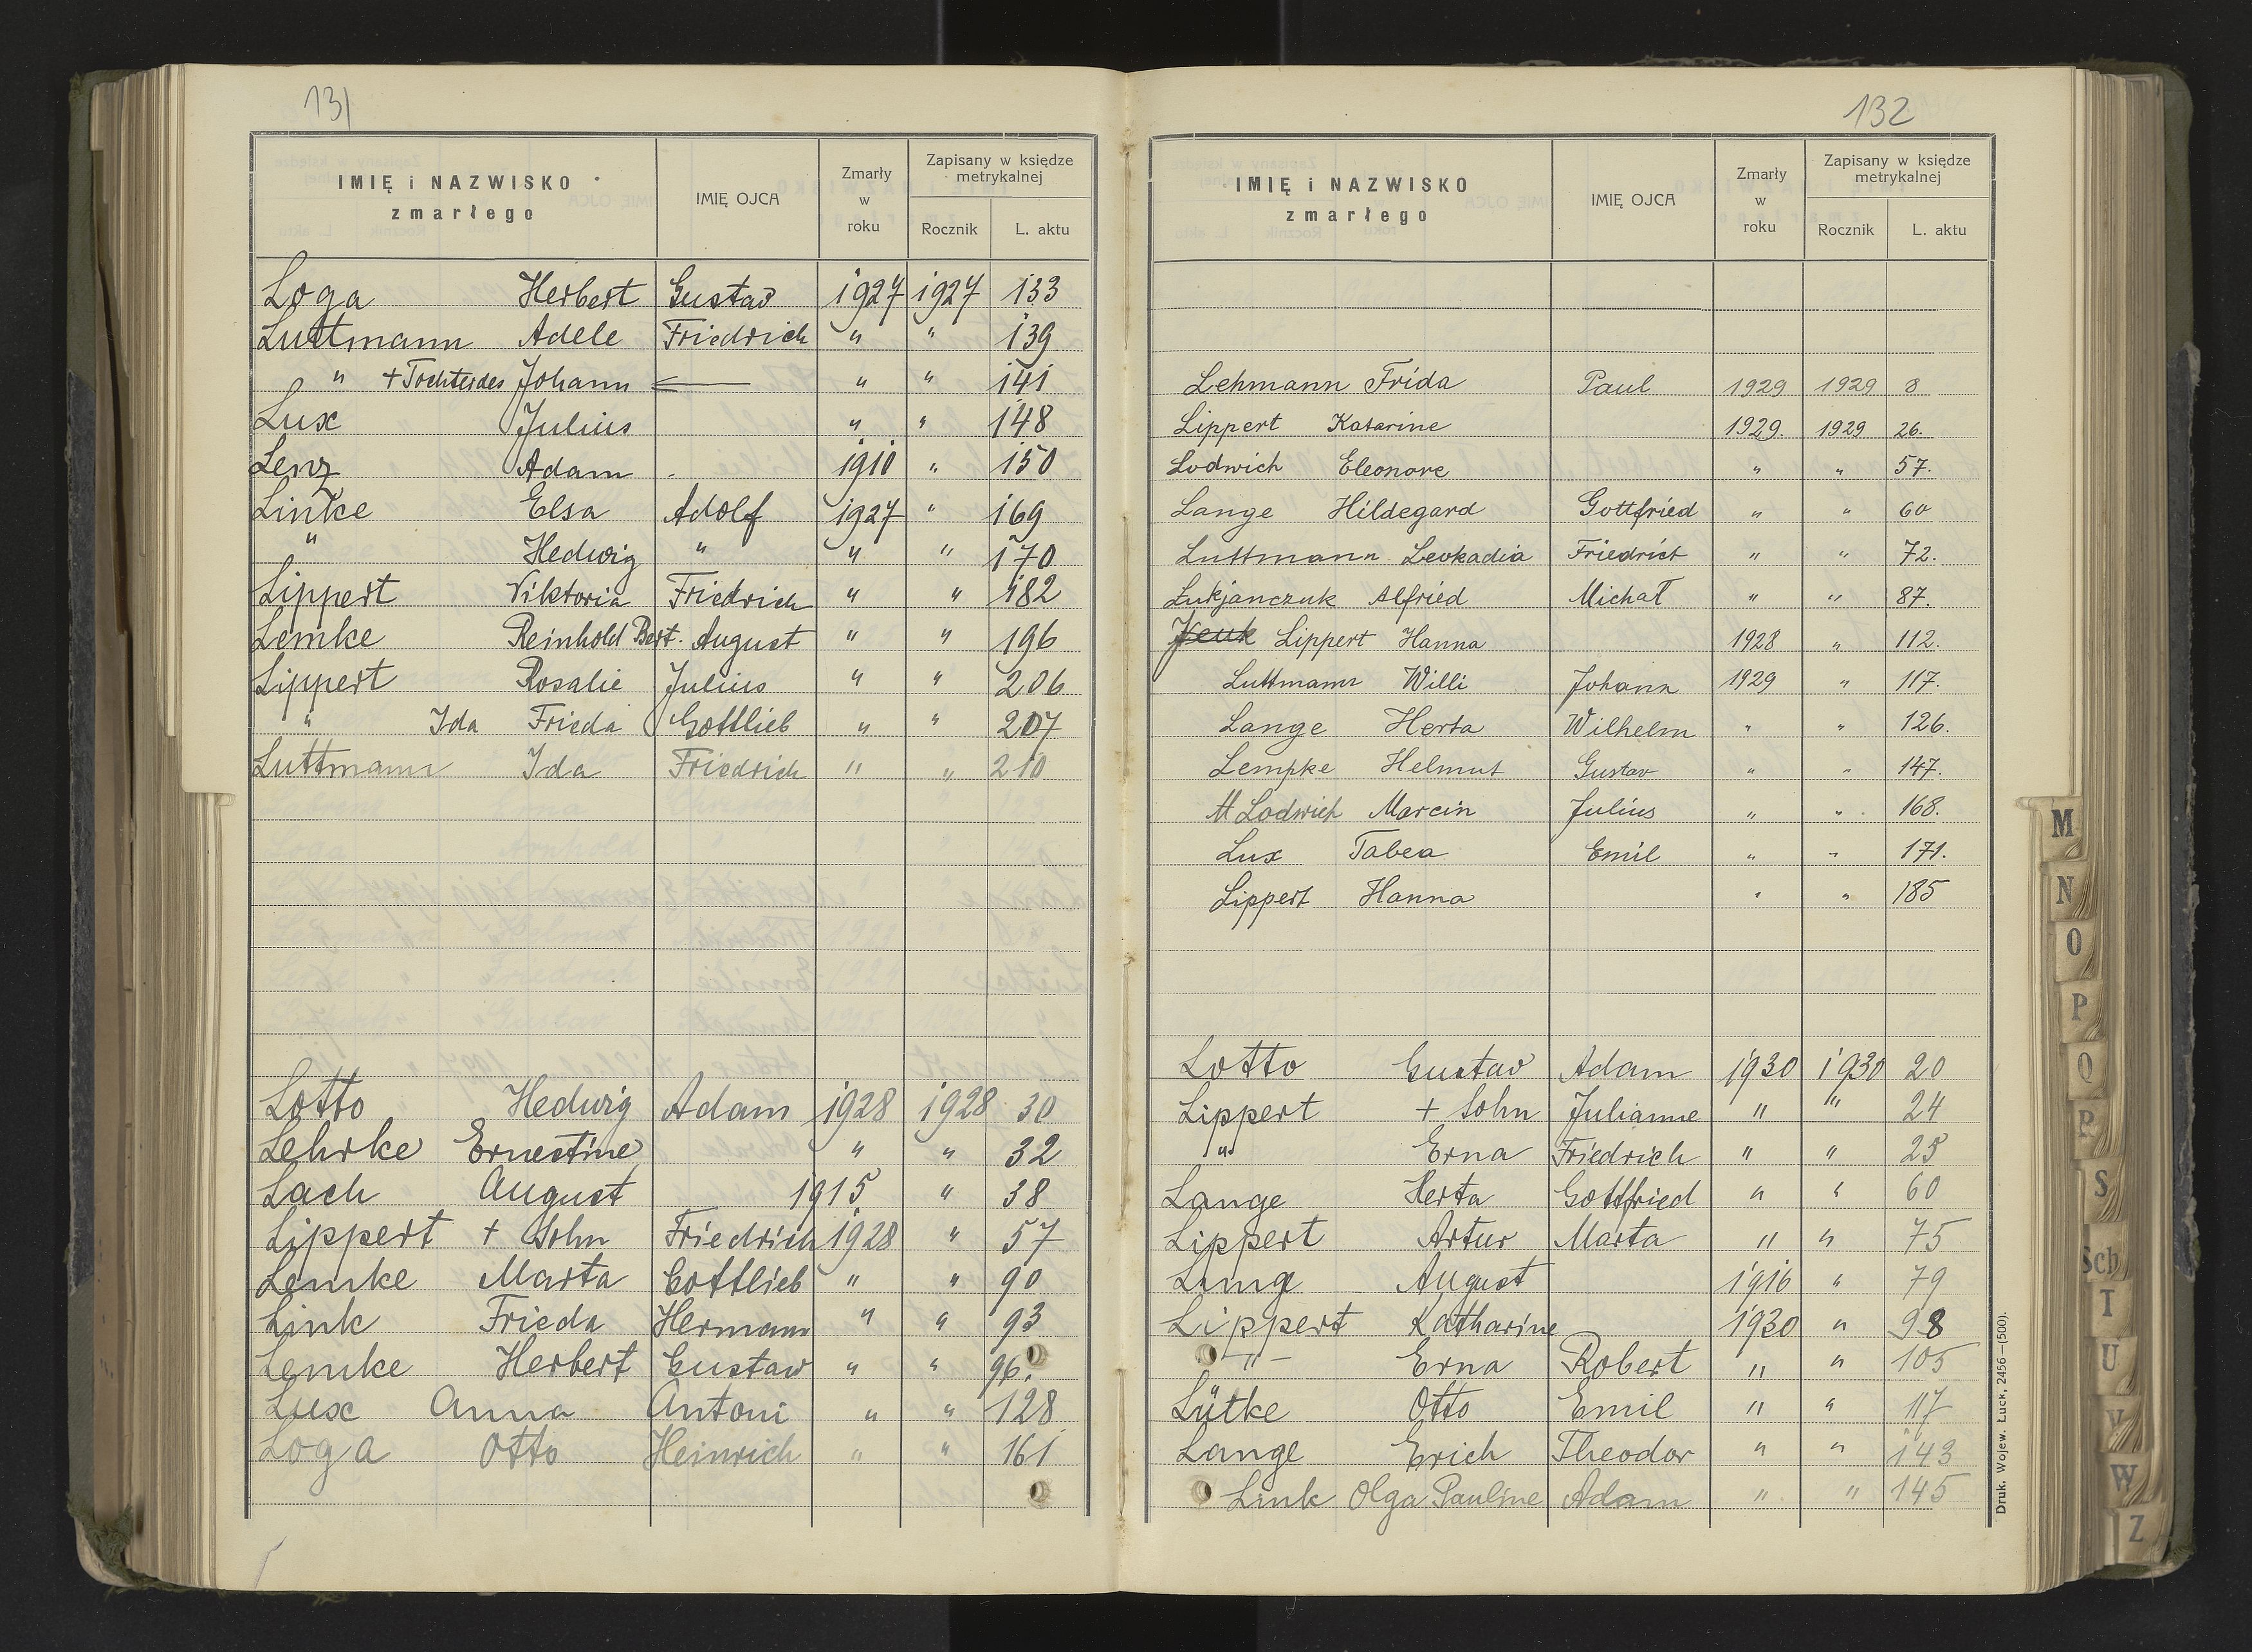 131
IMIĘ i NAZWISKO zmarłego IMIĘ OJCA Zmarły w roku Zapisany w księdze metrykalnej Rocznik L. aktu
Loga Herbert Gustav 1927 1927 133
Luttmann Adele Friedrich " " 139
" + Tochter des Johann — " " 141
Lux Julius " " 148
Lenz Adam 1910 " 150
Linke Elsa Adolf 1927 " 169
" Hedwig " " " 170
Lippert Viktoria Friedrich " " 182
Lemke Reinhold Bert. August " " 196
Lippert Rosalie Julius " " 206
" Ida Frieda Gottlieb " " 207
Luttmann Ida Friedrich " " 210
Lotto Hedwig Adam 1928 1928 30
Lehrke Ernestine " " 32
Lach August 1915 " 38
Lippert + Sohn Friedrich 1928 " 57
Lemke Marta Gottlieb " " 90
Link Frieda Hermann " " 93
Lemke Herbert Gustaw " " 96.
Lux Anna Antoni " " 128
Loga Otto Heinrich " " 161
132
IMIĘ i NAZWISKO zmarłego IMIĘ OJCA Zmarły w roku Zapisany w księdze metrykalnej Rocznik L. aktu
Lehmann Frida Paul 1929 1929 8
Lippert Katarine 1929. 1929 26.
Lodwich Eleonore " " 57.
Lange Hildegard Gottfried " " 60
Luttmann Leokadia Friedrich " " 72.
Łukjanczuk Alfried Michał " " 87.
Lippert Hanna 1928 " 112.
Luttmann Willi Johann 1929 " 117.
Lange Herta Wilhelm " " 126.
Lempke Helmut Gustav " " 147.
M Lodwich Marcin Julius " " 168.
Lux Tabea Emil " " 171.
Lippert Hanna " " 185
Lotto Gustav Adam 1930 1930 20
Lippert + Sohn Julianne " " 24
" Erna Friedrich " " 25
Lange Herta Gottfried " " 60
Lippert Artur Marta " " 75
August 1916 " 79
Lippert Katharine 1930 " 98
-"- Erna Robert " " 105
Lütke Otto Emil " " 117
Lange Erich Theodor " " 143
Link Olga Pauline Adam " " 145
Druk. Wojew. Łuck, 2456—(500).
M
N
O
P
Q
R
S
Sch
T
U
V
W
Z